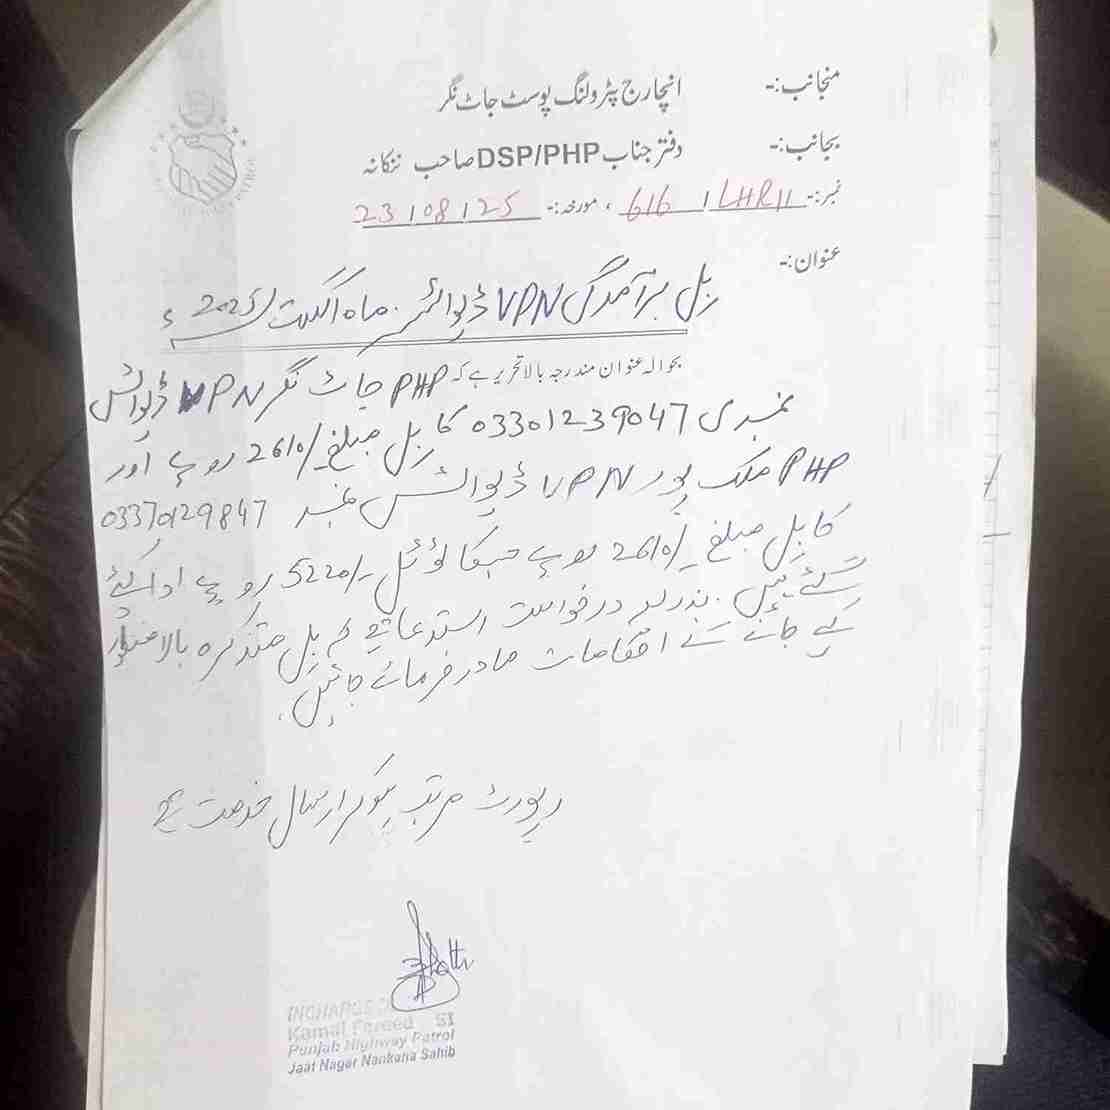 منجانب:- انچارج پٹرولنگ پوسٹ جاٹ نگر
بجانب:- دفتر جناب DSP/PHP صاحب ننکانہ
نمبر:- 616 / LHRH ، مورخہ:- 23/08/25
عنوان:-
بل برآمدگی VPN ڈیوائسز ماہ اگست 2025ء
بحوالہ عنوان مندرجہ بالا تحریر ہے کہ PHP جاٹ نگر VPN ڈیوائس
نمبری 03301239047 کا بل مبلغ 2610/- روپے اور
PHP ملک پور VPN ڈیوائس نمبر 03370129847
کا بل مبلغ 2610/- روپے جسکا ٹوٹل 5220/- روپے ادا کیے
گئے ہیں۔ بذریعہ درخواست استدعا ہے کہ بل متذکرہ بالا
کیے جانے کے احکامات صادر فرمائے جائیں۔
رپورٹ مرتب ہو کر ارسال خدمت ہے
INCHARGE
Kamal Fareed SI
Punjab Highway Patrol
Jaat Nagar Nankana Sahib